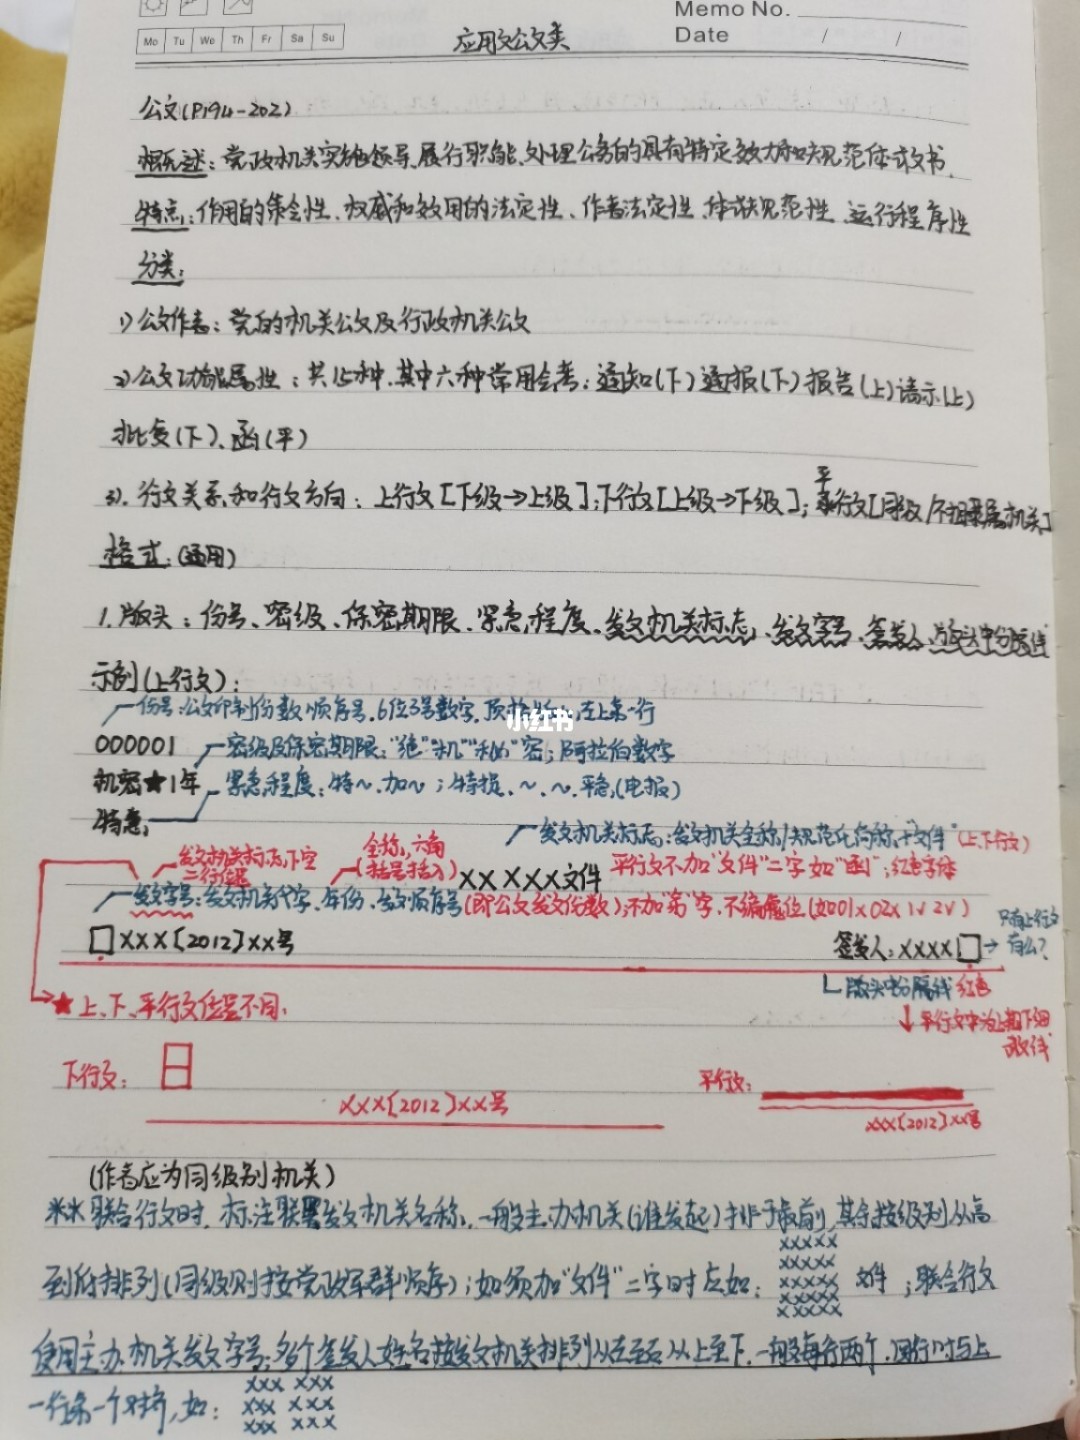 Memo No.
Mo Tu We Th Fr Sa Su
Date / /
应用文公文类
公文(P194-202)
概述:党政机关实施领导、履行职能、处理公务的具有特定效力和规范体式文书.
特点:作用的策令性、权威和效用的法定性、作者法定性、体式规范性、运行程序性
分类:
1)公文作者:党的机关公文及行政机关公文
2)公文功能属性:共15种.其中六种常用会考:通知(下)通报(下)报告(上)请示(上)
批复(下)、函(平)
3).行文关系和行文方向:上行文[下级→上级];下行文[上级→下级];平行文[同级/不相隶属机关]
格式:(通用)
1.版头:份号、密级、保密期限、紧急程度、发文机关标志、发文字号、签发人、版头中分隔线
示例(上行文):
份号:公文印制份数顺序号.6位3号数字,顶格,左上第一行
000001
密级及保密期限:"绝""机""秘"密;阿拉伯数字
机密★1年
紧急程度:特~.加~;特提、~、~.平急(电报)
特急
发文机关标志:发文机关全称/规范化简称+"文件"(上.下行文)
发文机关标志下空
二行位置
全称,六角
(括号括入)
XXXXX文件
平行文不加"文件"二字如"函";红色字体
发文字号:发文机关代字、年份、发文顺序号(即公文发文份数);不加"第"字,不编虚位(如001x 02x 1√ 2√)
□XXX〔2012〕XX号
签发人:XXXX□
→只有上行文
有么?
版头中分隔线 红色
★上、下、平行文位置不同.
↓平行文中为上粗下细
下行文:
XXX〔2012〕XX号
平行文:
XXX〔2012〕XX号
(作者应为同级别机关)
※※联合行文时.标注联署发文机关名称.一般主办机关(谁发起)排于最前,其余按级别从高
到低排列(同级则按党政军群顺序);如须加"文件"二字时应如:
XXXXX
XXXXX
XXXXX
XXXXX
XXXXX
文件;联合行文
使用主办机关发文字号;多个签发人姓名按发文机关排列从左至右从上至下.一般每行两个.回行时与上
一行第一个对齐,如:
XXX XXX
XXX XXX
XXX XXX
小红书